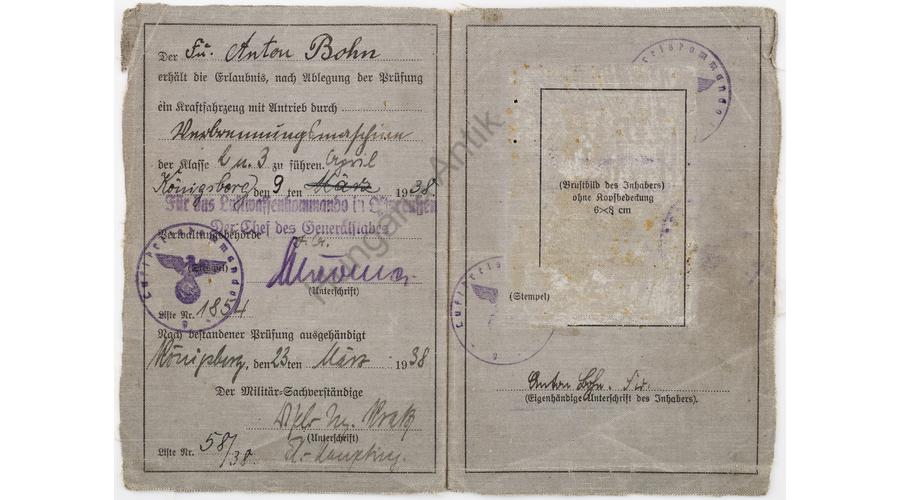 Der Fu. Anton Bohn
erhält die Erlaubnis, nach Ablegung der Prüfung
ein Kraftfahrzeug mit Antrieb durch
Verbrennungsmaschine
der Klasse 2 u. 3 zu führen. April
Königsberg, den 9 ten März 1938
Für das Luftwaffenkommando in Ostpreußen
Der Chef des Generalstabes
Verwaltungsbehörde
(Stempel)
(Unterschrift)
Liste Nr. 1854
Nach bestandener Prüfung ausgehändigt
Königsberg, den 23 ten März 1938
Der Militär-Sachverständige
Dipl. Ing.
(Unterschrift)
Liste Nr. 58/38
(Brustbild des Inhabers)
ohne Kopfbedeckung
6×8 cm
(Stempel)
Anton Bohn.
(Eigenhändige Unterschrift des Inhabers).
Hungaria Antik